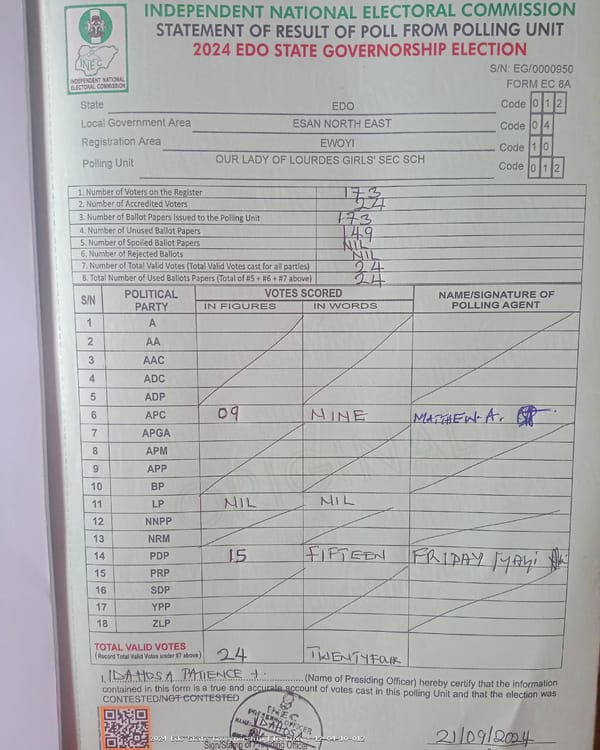 INDEPENDENT NATIONAL ELECTORAL COMMISSION
STATEMENT OF RESULT OF POLL FROM POLLING UNIT
2024 EDO STATE GOVERNORSHIP ELECTION
INEC
INDEPENDENT NATIONAL
ELECTORAL COMMISSION
S/N: EG/0000950
FORM EC 8A
State EDO Code 0 1 2
Local Government Area ESAN NORTH EAST Code 0 4
Registration Area EWOYI Code 1 0
Polling Unit OUR LADY OF LOURDES GIRLS' SEC SCH Code 0 1 2
1. Number of Voters on the Register 173
2. Number of Accredited Voters 24
3. Number of Ballot Papers Issued to the Polling Unit 173
4. Number of Unused Ballot Papers 149
5. Number of Spoiled Ballot Papers NIL
6. Number of Rejected Ballots NIL
7. Number of Total Valid Votes (Total Valid Votes cast for all parties) 24
8. Total Number of Used Ballots Papers (Total of #5 + #6 + #7 above) 24
S/N POLITICAL PARTY VOTES SCORED NAME/SIGNATURE OF POLLING AGENT
IN FIGURES IN WORDS
1 A
2 AA
3 AAC
4 ADC
5 ADP
6 APC 09 NINE MATTHEW A.
7 APGA
8 APM
9 APP
10 BP
11 LP NIL NIL
12 NNPP
13 NRM
14 PDP 15 FIFTEEN FRIDAY
15 PRP
16 SDP
17 YPP
18 ZLP
TOTAL VALID VOTES 24 TWENTYFOUR
(Record Total Valid Votes under #7 above)
I, IDAHOSA PATIENCE (Name of Presiding Officer) hereby certify that the information
contained in this form is a true and accurate account of votes cast in this polling Unit and that the election was
CONTESTED/NOT CONTESTED
INEC
PRESIDING OFFICER
IDAHOSA
21/09/2024
Sign/Stamp of Presiding Officer